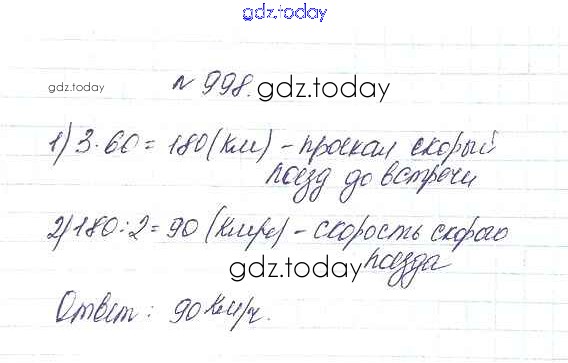 gdz.today
gdz.today
№ 998.
gdz.today
1) 3·60 = 180 (км) - проехал скорый
поезд до встречи
2) 180:2 = 90 (км/ч) - скорость скорого
поезда
gdz.today
Ответ: 90 км/ч.